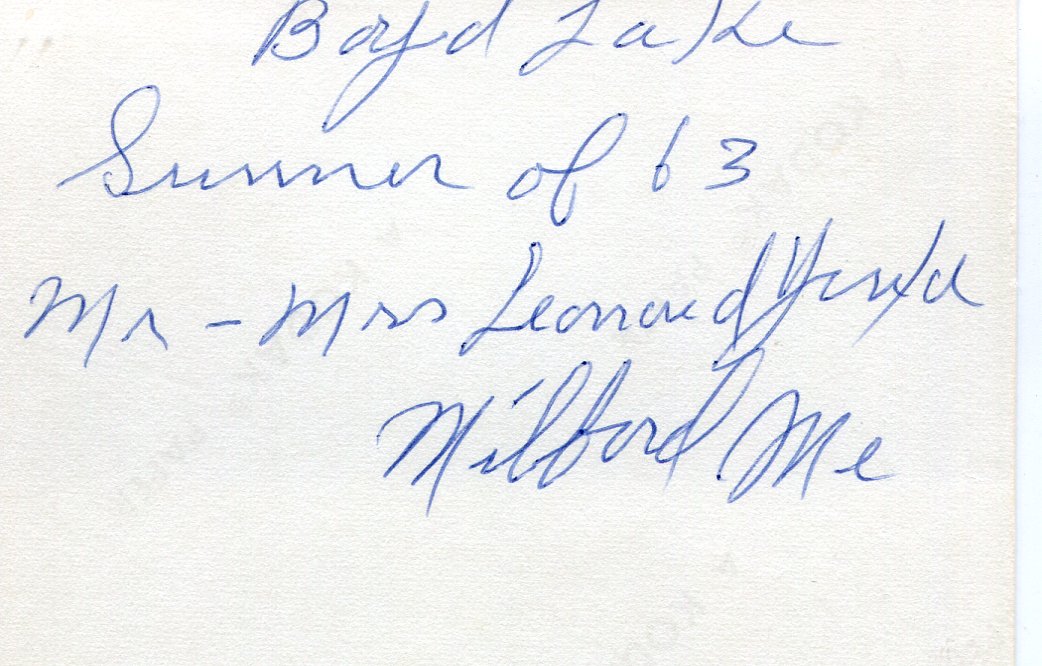 Boyd Lake
Summer of 63
Mr - Mrs Leonard Yerxa
Milford Me